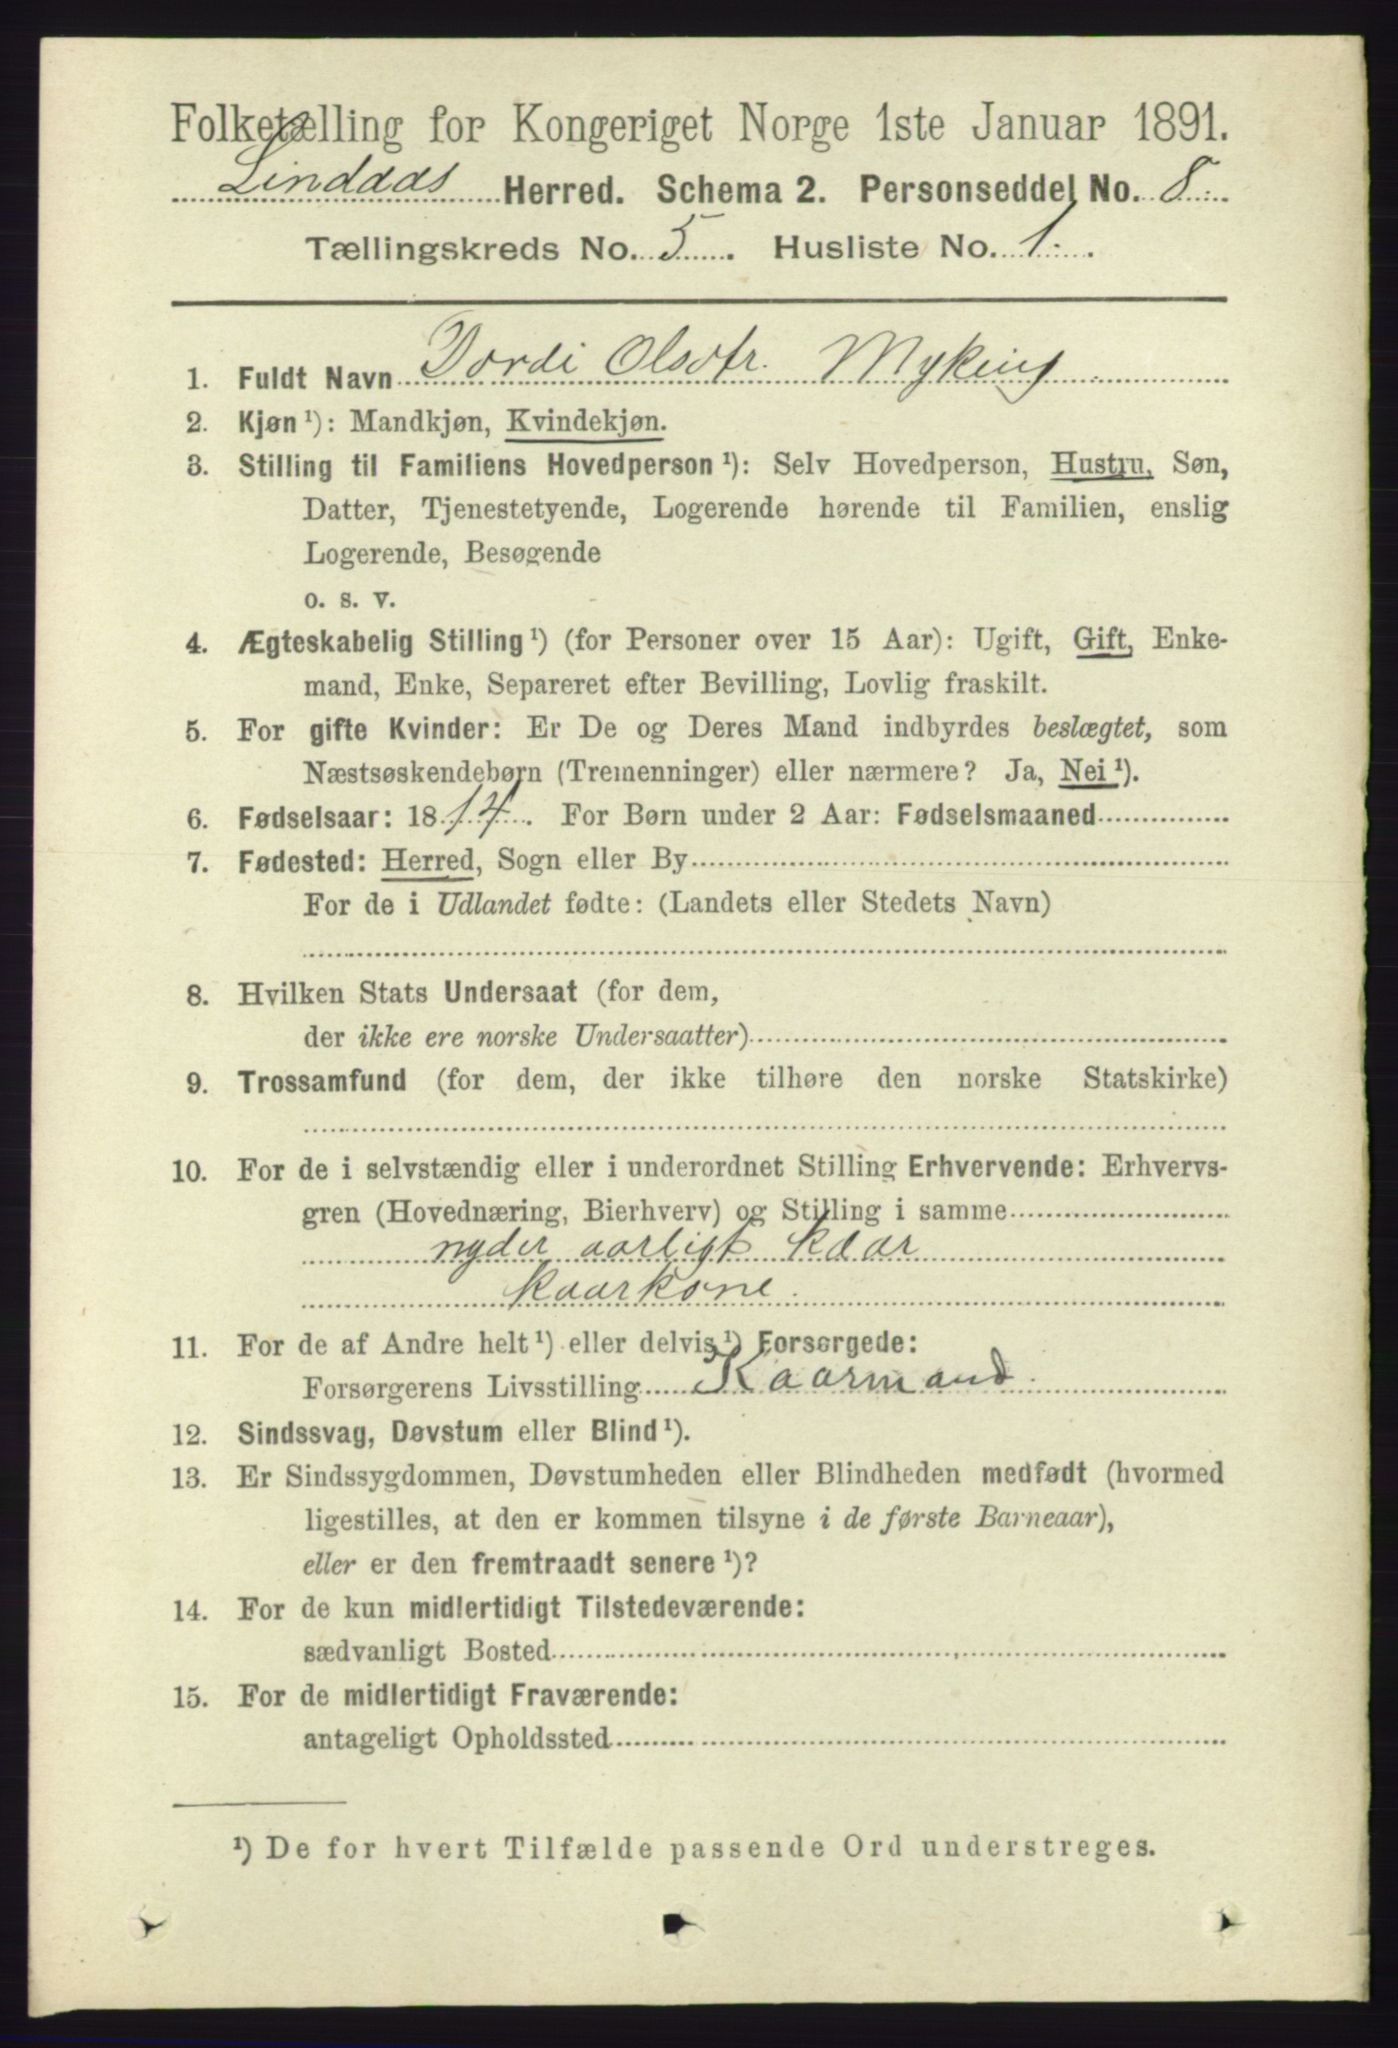 Folketælling for Kongeriget Norge 1ste Januar 1891.
Lindaas Herred. Schema 2. Personseddel No. 8.
Tællingskreds No. 5. Husliste No. 1.
1. Fuldt Navn Dordi Olsdtr. Myking
2. Kjøn ¹): Mandkjøn, Kvindekjøn.
3. Stilling til Familiens Hovedperson ¹): Selv Hovedperson, Hustru, Søn,
Datter, Tjenestetyende, Logerende hørende til Familien, enslig
Logerende, Besøgende
o. s. v.
4. Ægteskabelig Stilling ¹) (for Personer over 15 Aar): Ugift, Gift, Enke-
mand, Enke, Separeret efter Bevilling, Lovlig fraskilt.
5. For gifte Kvinder: Er De og Deres Mand indbyrdes beslægtet, som
Næstsøskendebørn (Tremenninger) eller nærmere? Ja, Nei ¹).
6. Fødselsaar: 1814. For Børn under 2 Aar: Fødselsmaaned
7. Fødested: Herred, Sogn eller By
For de i Udlandet fødte: (Landets eller Stedets Navn)
8. Hvilken Stats Undersaat (for dem,
der ikke ere norske Undersaatter)
9. Trossamfund (for dem, der ikke tilhøre den norske Statskirke)
10. For de i selvstændig eller i underordnet Stilling Erhvervende: Erhvervs-
gren (Hovednæring, Bierhverv) og Stilling i samme
nyder aarligt kaar
kaarkone.
11. For de af Andre helt ¹) eller delvis ¹) Forsørgede:
Forsørgerens Livsstilling Kaarmand.
12. Sindssvag, Døvstum eller Blind ¹).
13. Er Sindssygdommen, Døvstumheden eller Blindheden medfødt (hvormed
ligestilles, at den er kommen tilsyne i de første Barneaar),
eller er den fremtraadt senere ¹)?
14. For de kun midlertidigt Tilstedeværende:
sædvanligt Bosted
15. For de midlertidigt Fraværende:
antageligt Opholdssted
¹) De for hvert Tilfælde passende Ord understreges.